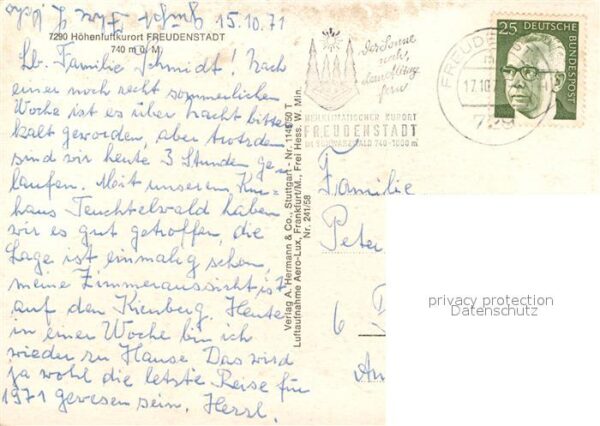 15.10.71
7290 Höhenluftkurort FREUDENSTADT
740 m ü. M.
Lb. Familie Schmidt! Nach
einer noch recht sommerlichen
Woche ist es über Nacht bitter
kalt geworden, aber trotzdem
sind wir heute 3 Stunden ge-
laufen. Mit unserem Kur-
haus Teuchtelwald haben
wir es gut getroffen, die
Lage ist einmalig schön,
meine Zimmeraussicht ist
auf den Kienberg. Heute
in einer Woche bin ich
wieder zu Hause. Das wird
ja wohl die letzte Reise für
1971 gewesen sein. Herzl.
Verlag A. Hermann & Co., Stuttgart - Nr. 1149/50 T
Luftaufnahme Aero-Lux, Frankfurt/M., Frei Hess. W. Min.
Nr. 241/58
der Sonne
nach,
dem Alltag
fern
HEILKLIMATISCHER KURORT
FREUDENSTADT
IM SCHWARZWALD 740-1000 m
FREUDEN
17.10.
729
25
DEUTSCHE
BUNDESPOST
Familie
Peter
6
privacy protection
Datenschutz